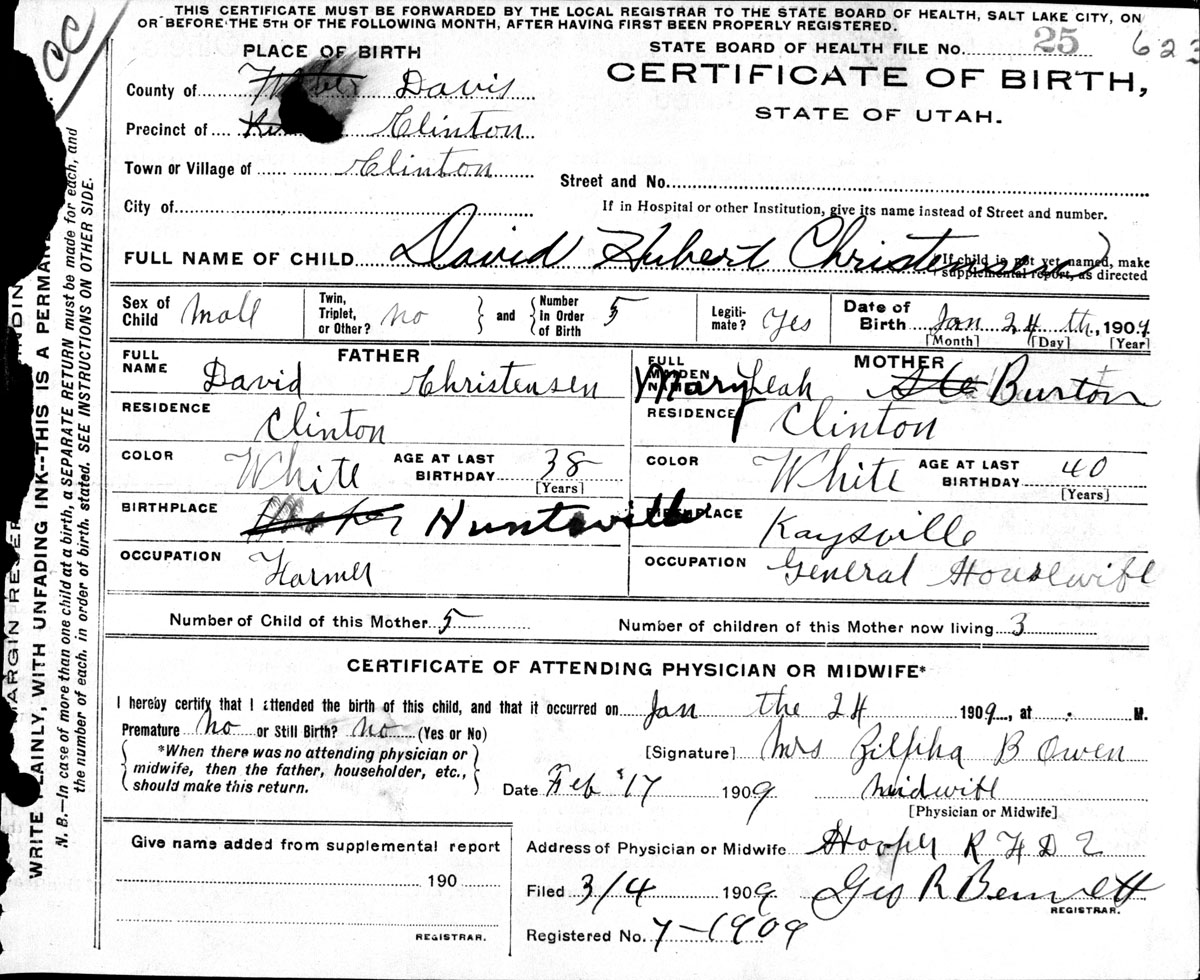 THIS CERTIFICATE MUST BE FORWARDED BY THE LOCAL REGISTRAR TO THE STATE BOARD OF HEALTH, SALT LAKE CITY, ON
OR BEFORE THE 5TH OF THE FOLLOWING MONTH, AFTER HAVING FIRST BEEN PROPERLY REGISTERED.
CC
PLACE OF BIRTH
STATE BOARD OF HEALTH FILE No. 25 623
CERTIFICATE OF BIRTH,
STATE OF UTAH.
County of Davis
Precinct of Clinton
Town or Village of Clinton
Street and No.
City of
If in Hospital or other Institution, give its name instead of Street and number.
FULL NAME OF CHILD David Hubert Christensen
If child is not yet named, make
supplemental report, as directed
Sex of Child Mall
Twin, Triplet, or Other? No
and Number in Order of Birth 5
Legitimate? Yes
Date of Birth Jan 24 th, 1909
[Month] [Day] [Year]
FATHER
FULL NAME David Christensen
RESIDENCE Clinton
COLOR White AGE AT LAST BIRTHDAY 38
[Years]
BIRTHPLACE Huntsville
OCCUPATION Farmer
MOTHER
FULL MAIDEN NAME Mary Leah Burton
RESIDENCE Clinton
COLOR White AGE AT LAST BIRTHDAY 40
[Years]
BIRTHPLACE Kaysville
OCCUPATION General Housewife
Number of Child of this Mother 5 Number of children of this Mother now living 3
CERTIFICATE OF ATTENDING PHYSICIAN OR MIDWIFE*
I hereby certify that I attended the birth of this child, and that it occurred on Jan the 24 1909, at M.
Premature No or Still Birth? no (Yes or No)
*When there was no attending physician or
midwife, then the father, householder, etc.,
should make this return.
[Signature] Mrs Zilpha B Owen
Date Feb 17 1909 Midwife
[Physician or Midwife]
Give name added from supplemental report
190
REGISTRAR.
Address of Physician or Midwife Hooper R F D 2
Filed 3/4 1909 Geo R Bennett
REGISTRAR.
Registered No. 7-1909
MARGIN
WRITE PLAINLY, WITH UNFADING INK--THIS IS A PERMANE
N. B.—In case of more than one child at a birth, a SEPARATE RETURN must be made for each, and
the number of each, in order of birth, stated. SEE INSTRUCTIONS ON OTHER SIDE.